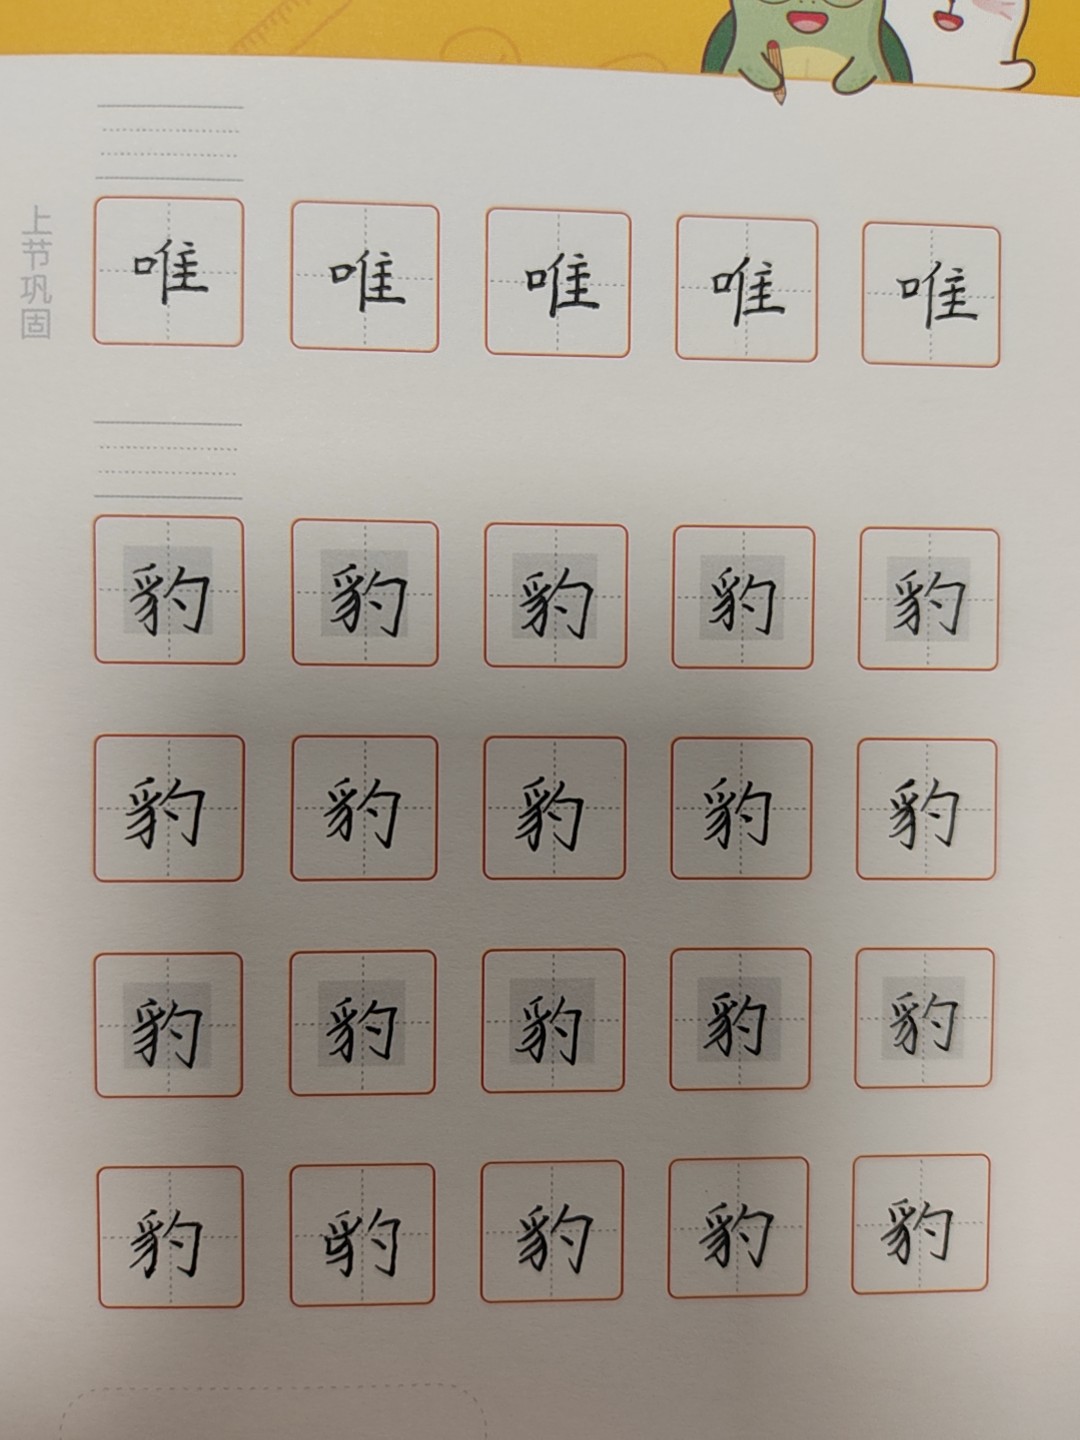 上节巩固
唯 唯 唯 唯 唯
豹 豹 豹 豹 豹
豹 豹 豹 豹 豹
豹 豹 豹 豹 豹
豹 豹 豹 豹 豹